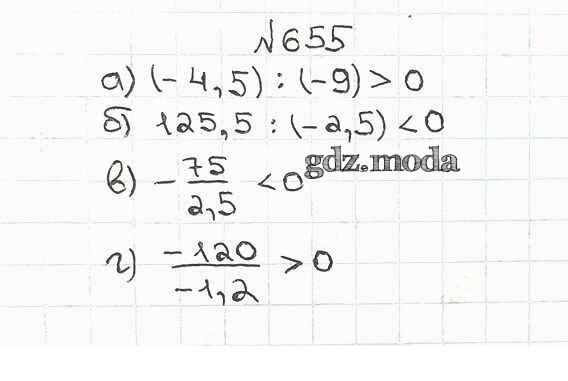 №655
а) (-4,5) : (-9) > 0
б) 125,5 : (-2,5) < 0
gdz.moda
в) -75/2,5 < 0
г) -120/-1,2 > 0